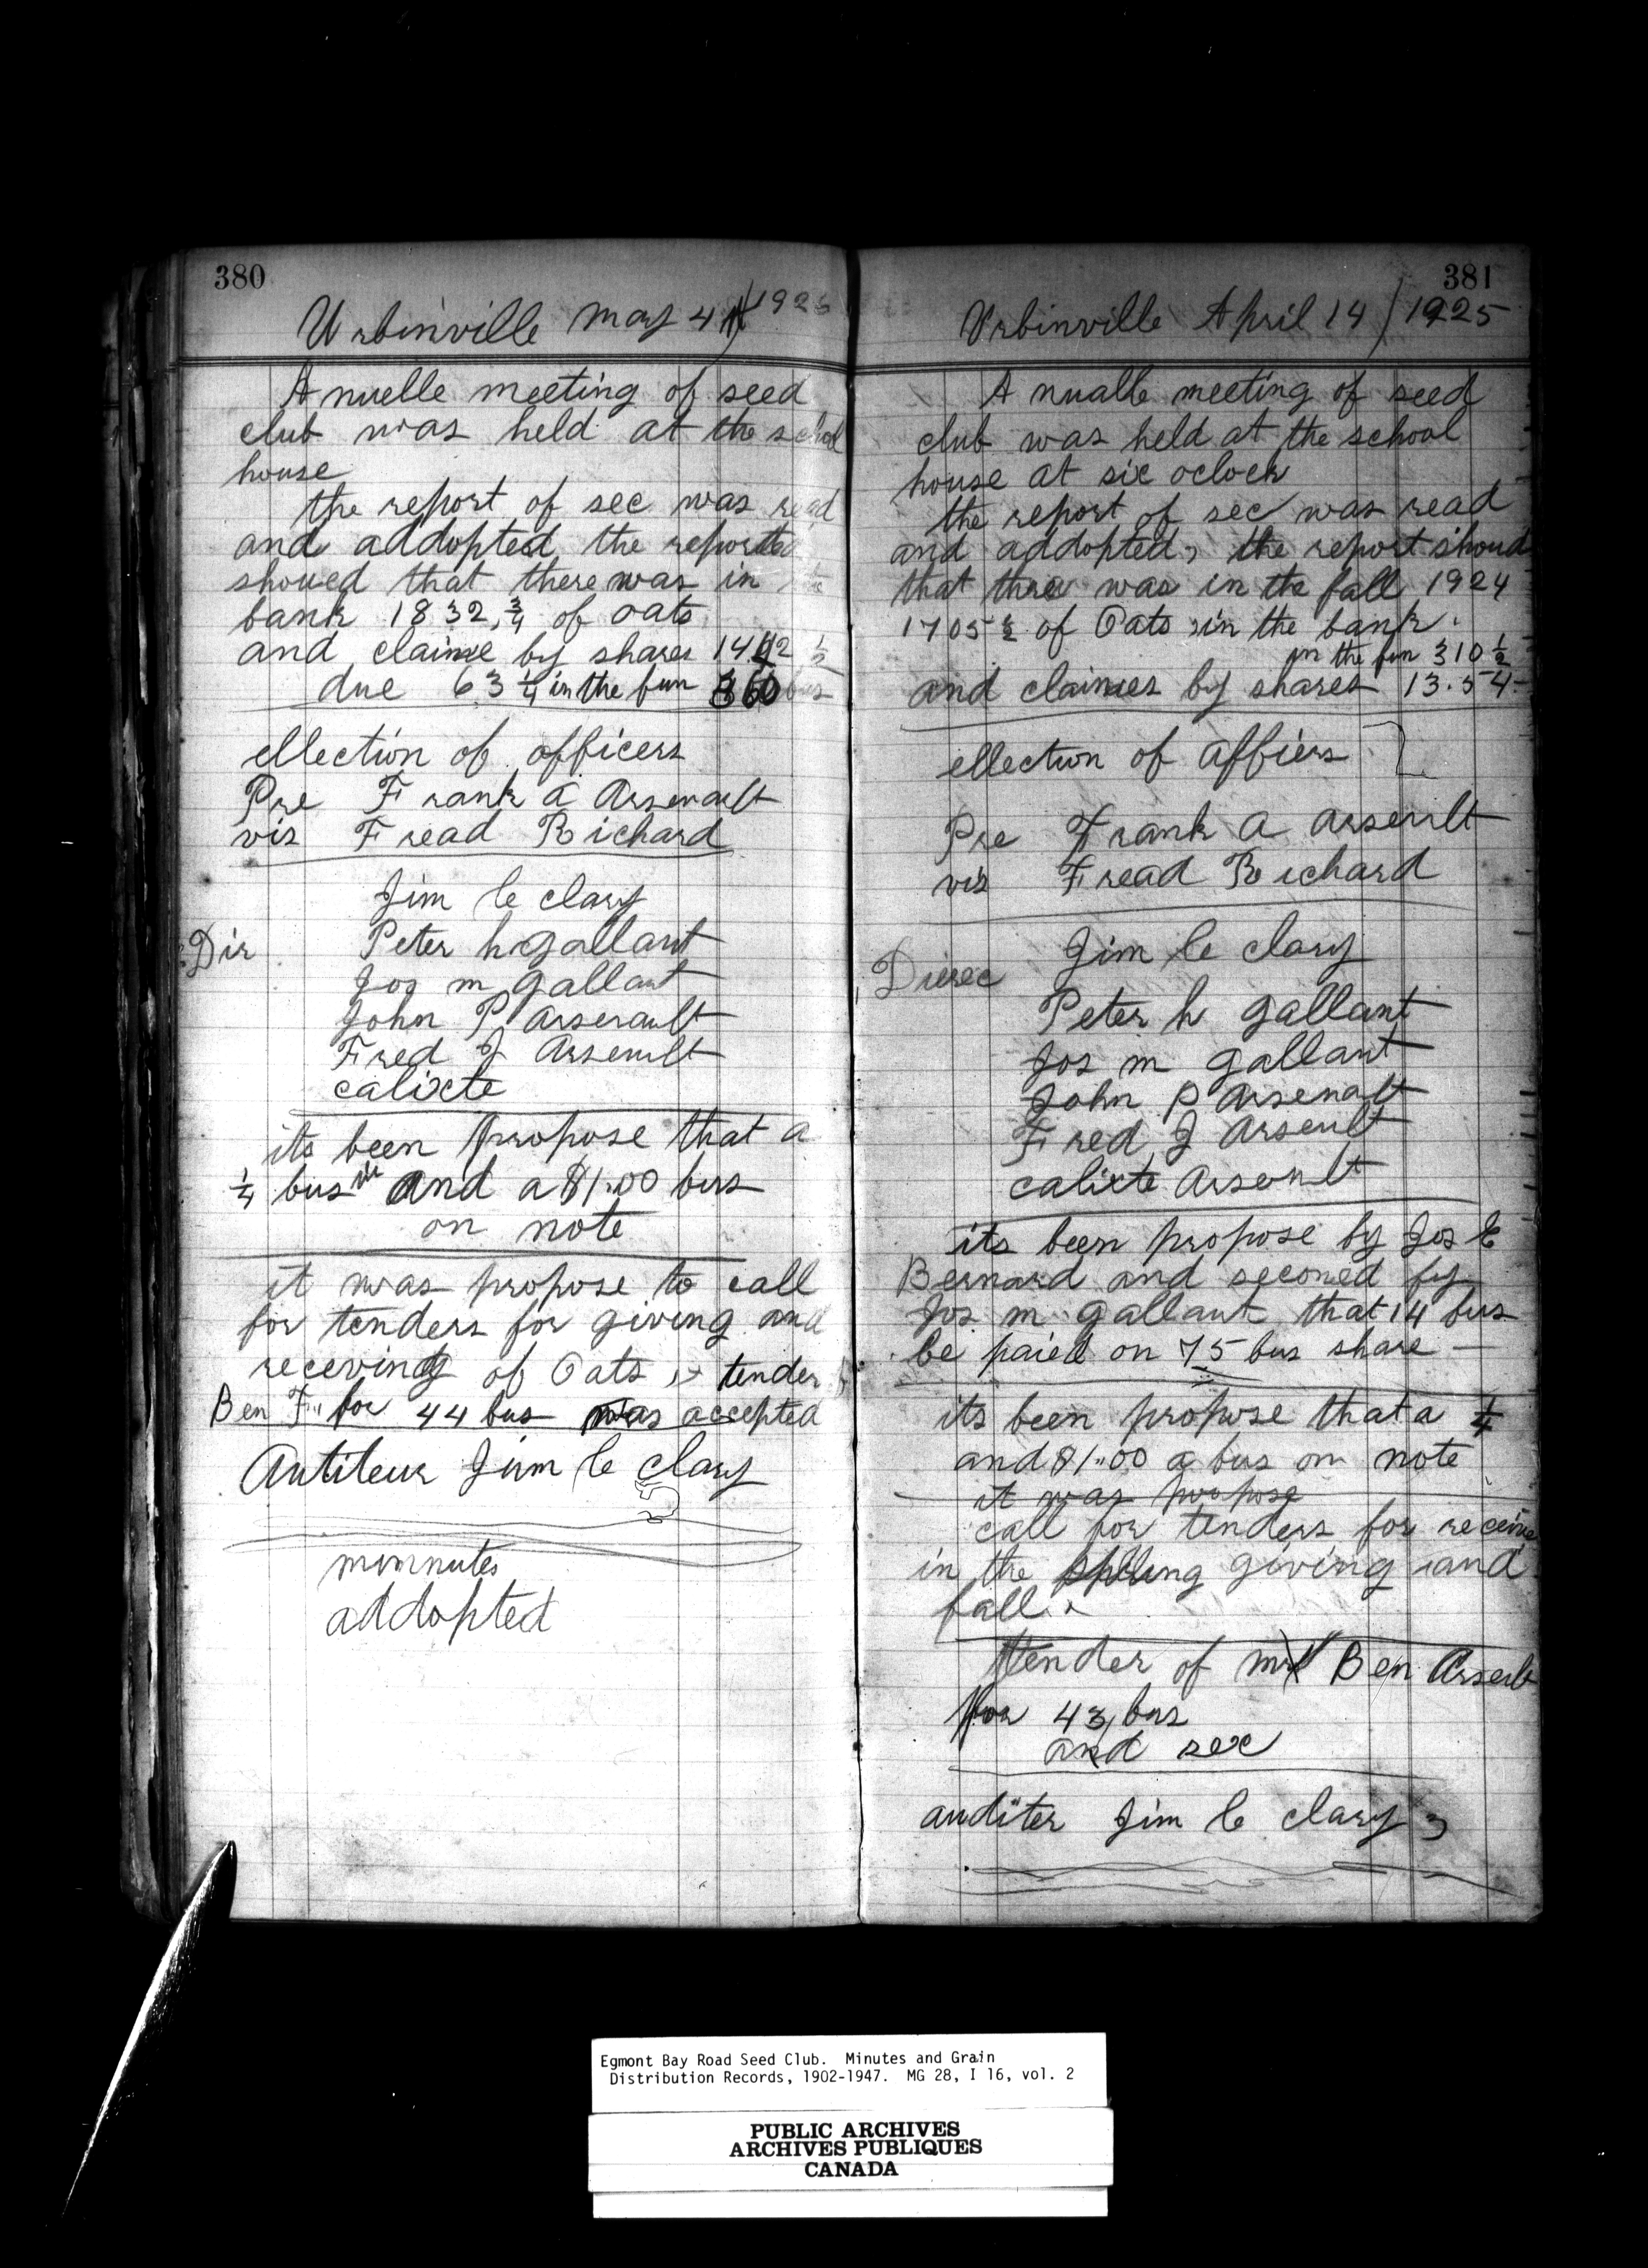 380
Urbinville May 4 1925
A nuelle meeting of seed
club was held at the school
house
the report of sec was read
and addopted the reported
shoued that there was in the
bank 1832, 3/4 of oats
and claime by shares 1402 1/2
due 63 1/4 in the fun 360 bus
ellection of officers
Pre Frank a Arsenault
vis Fread Richard
Jim le clary
Dir Peter h gallant
Jos m gallant
John P Arsenault
Fred J Arsenult
calixte
its been propose that a
1/4 bus and a $1.00 bus
on note
it was propose to call
for tenders for giving and
receving of Oats tender
Ben F. for 44 bus was accepted
Autiteur Jim le clary
mimnutes
addopted
381
Urbinville April 14 / 1925
A nualle meeting of seed
club was held at the school
house at six oclock
the report of sec was read
and addopted, the report shoud
that there was in the fall 1924
1705 1/2 of Oats in the bank.
in the fun 310 1/2
and claimes by shares 13.54
ellection of affiers
Pre Frank A Arseult
vis Fread Richard
Jim le clary
Direc
Peter h gallant
Jos m gallant
John P Arsenalt
Fred J Arseult
calixte Arsenult
its been propose by Jos E
Bernard and seconed by
Jos m gallant that 14 bus
be paied on 75 bus share
its been propose that a 1/4
and $1.00 a bus on note
it was propose
call for tenders for receive
in the spring giving and
fall.
tender of mr Ben Arseult
for 43 bus
and sec
auditer Jim le clary
Egmont Bay Road Seed Club. Minutes and Grain
Distribution Records, 1902-1947. MG 28, I 16, vol. 2
PUBLIC ARCHIVES
ARCHIVES PUBLIQUES
CANADA